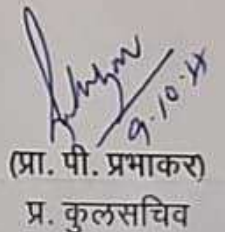 9.10.
(प्रा. पी. प्रभाकर)
प्र. कुलसचिव